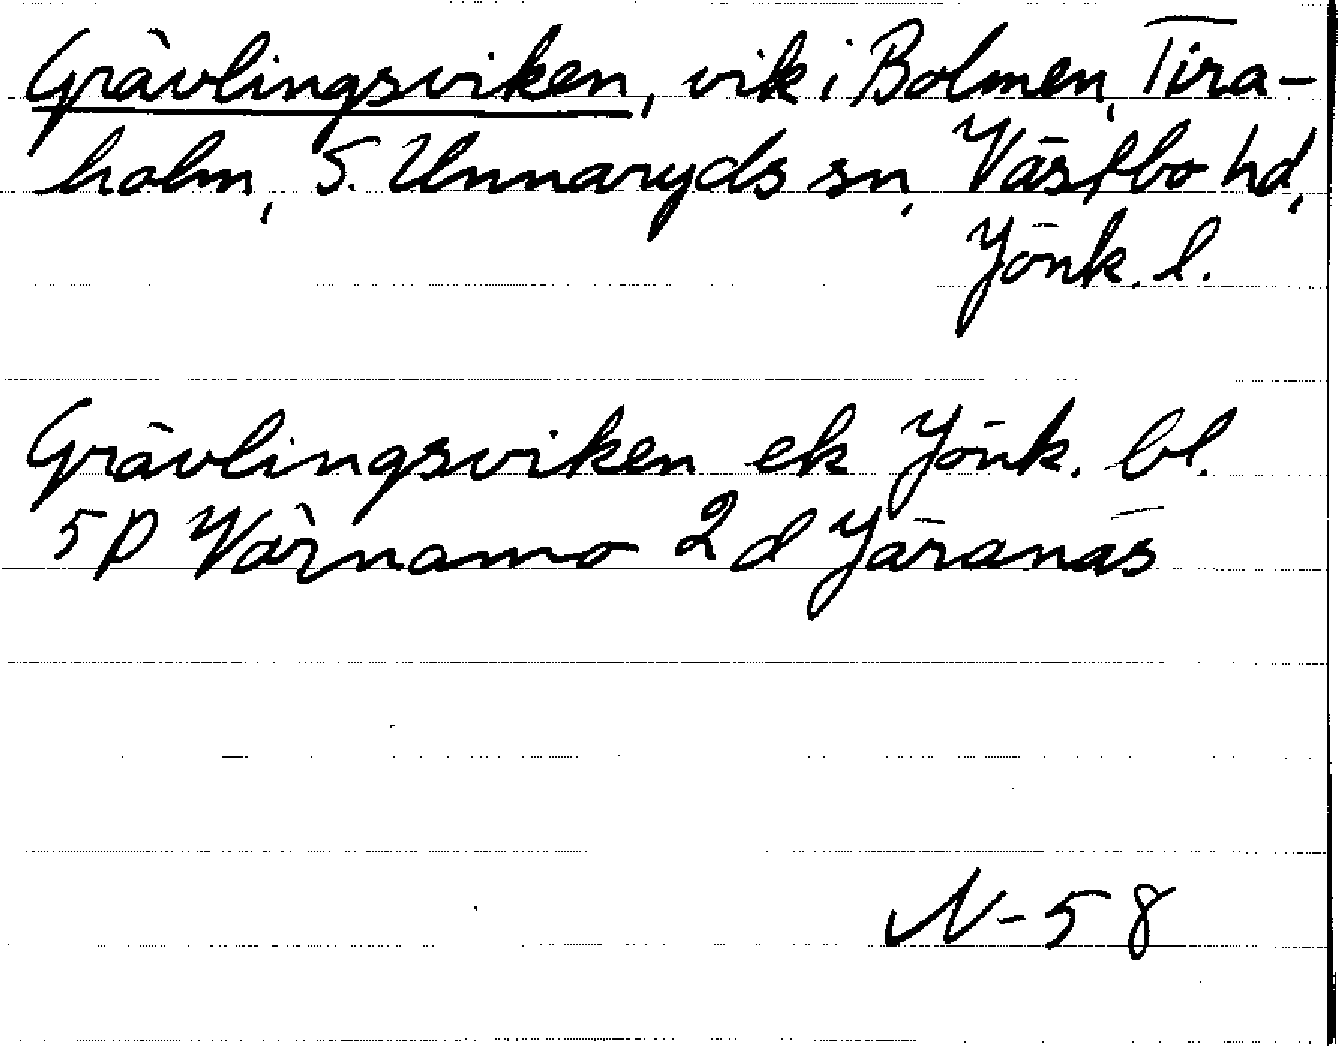 Grävlingsviken, vik i Bolmen, Tira-
holm, S. Unnaryds sn, Västbo hd,
Jönk. l.
Grävlingsviken ek Jönk. bl.
5D Värnamo 2d Järanäs
N-58